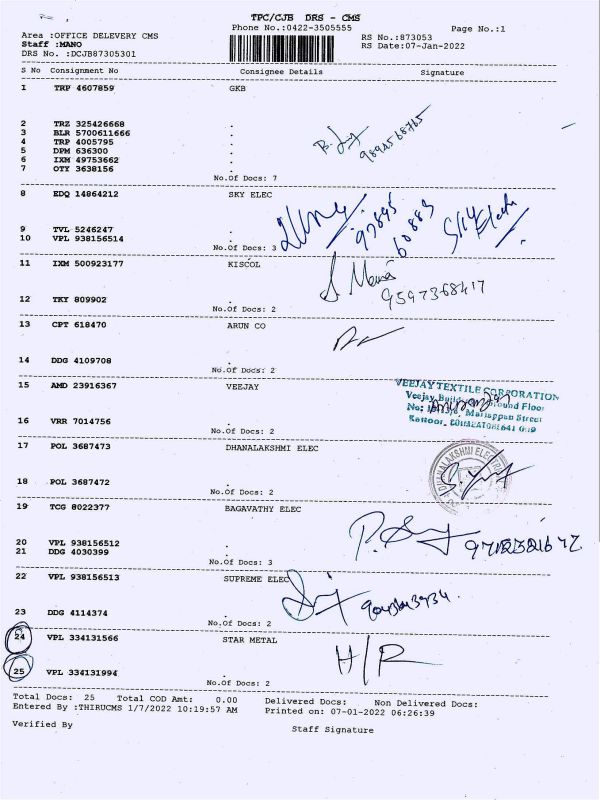 TPC/CJB DRS - CMS
Phone No.:0422-3505555
Page No.:1
Area :OFFICE DELEVERY CMS
RS No.:873053
Staff :MANO
RS Date:07-Jan-2022
DRS No. :DCJB87305301
S No Consignment No Consignee Details Signature
1 TRP 4607859 GKB
2 TRZ 325426668 .
3 BLR 5700611666 .
4 TRP 4005795 .
5 DPM 636300 .
6 IXM 49753662 .
7 OTY 3638156 .
No.Of Docs: 7
8 EDQ 14864212 SKY ELEC
9 TVL 5246247 .
10 VPL 938156514 .
No.Of Docs: 3
97895
60883
Sky Elec
11 IXM 500923177 KISCOL
9597368417
12 TKY 809902 .
No.Of Docs: 2
13 CPT 618470 ARUN CO
14 DDG 4109708 .
No.Of Docs: 2
15 AMD 23916367 VEEJAY
VEEJAY TEXTILE CORPORATION
Veejay Ground Floor
No: Street
16 VRR 7014756 .
No.Of Docs: 2
17 POL 3687473 DHANALAKSHMI ELEC
DHANALAKSHMI
18 POL 3687472 .
No.Of Docs: 2
19 TCG 8022377 BAGAVATHY ELEC
20 VPL 938156512 .
21 DDG 4030399 .
No.Of Docs: 3
22 VPL 938156513 SUPREME ELEC
23 DDG 4114374 .
No.Of Docs: 2
24 VPL 334131566 STAR METAL
H/R
25 VPL 334131994 .
No.Of Docs: 2
Total Docs: 25 Total COD Amt: 0.00 Delivered Docs: Non Delivered Docs:
Entered By :THIRUCMS 1/7/2022 10:19:57 AM Printed on: 07-01-2022 06:26:39
Verified By Staff Signature